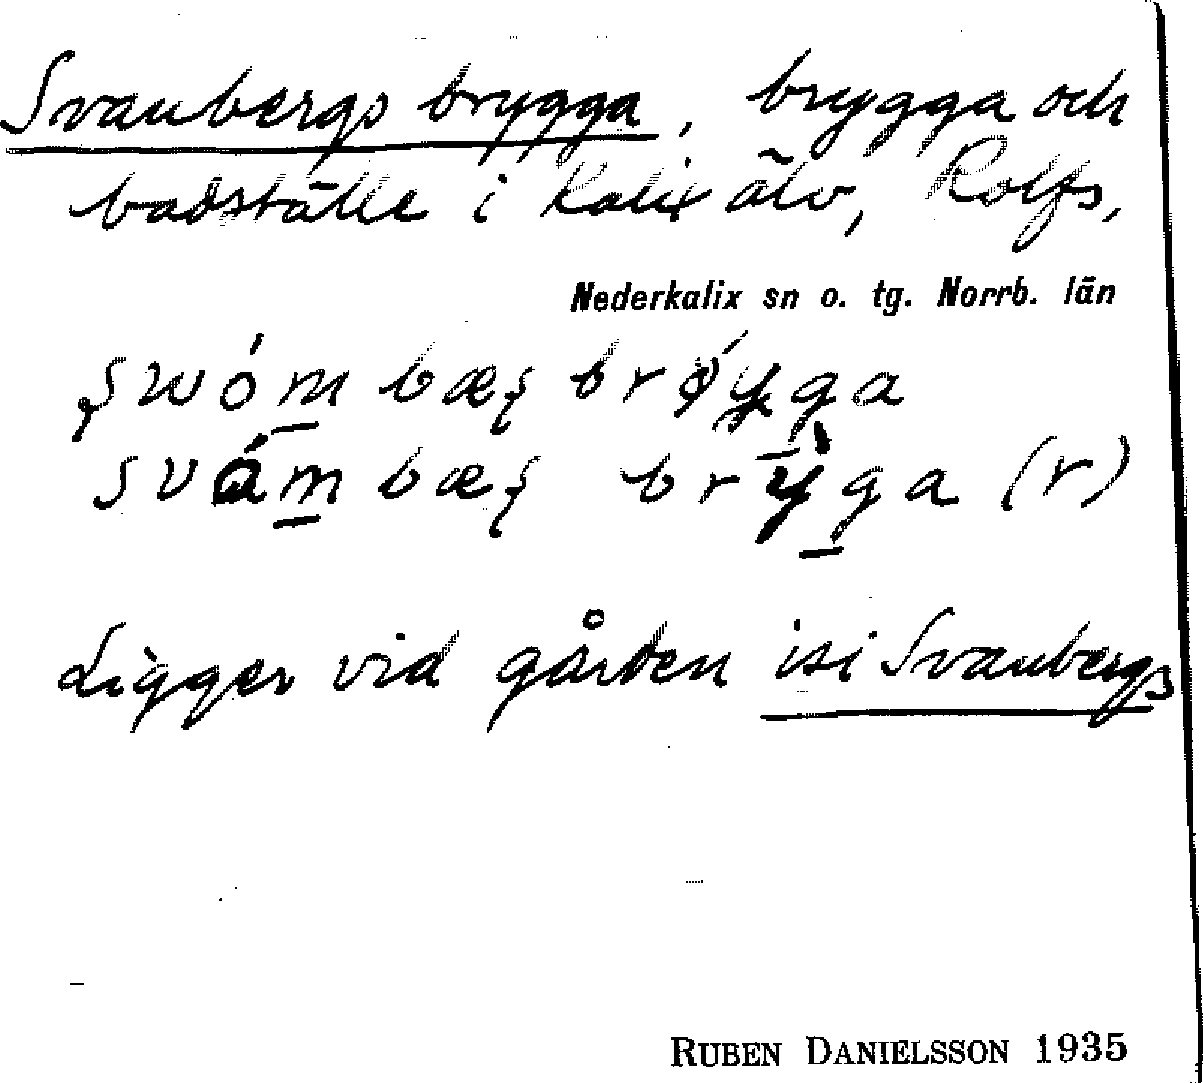 Svanbergs brygga, brygga och
badställe i Kalix älv, Rolfs,
Nederkalix sn o. tg. Norrb. län
swóm bæș brýga
svám bæș brỳga (r)
Ligger vid gården isi Svanbergs
RUBEN DANIELSSON 1935